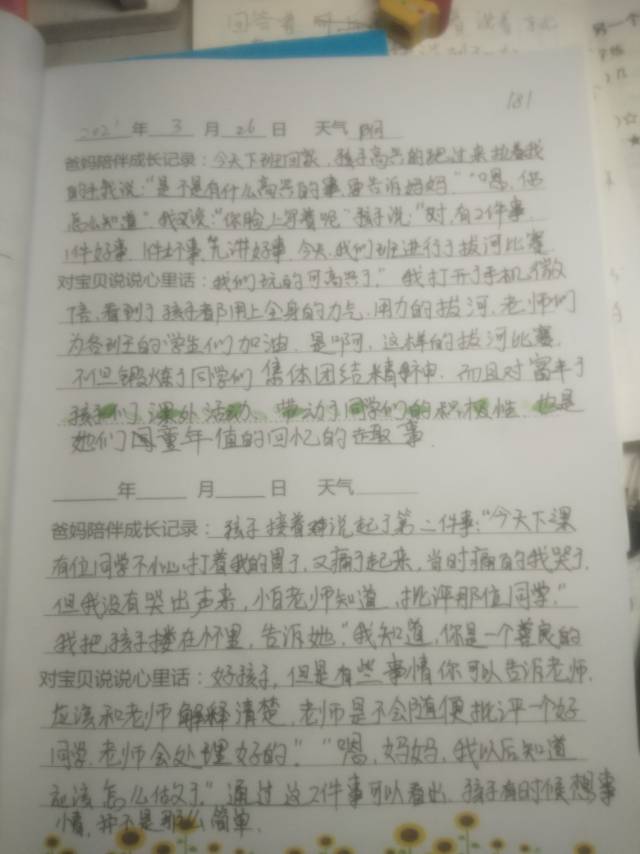 181
2021年 3 月 26 日 天气 阴
爸妈陪伴成长记录：今天下班回家，孩子高兴的跑过来拉着我
的手我说：“是不是有什么高兴的事要告诉妈妈”“嗯，你
怎么知道”我又说：“你脸上写着呢”孩子说：“对，有2件事，
1件好事，1件坏事，先讲好事，今天，我们班进行了拔河比赛
对宝贝说说心里话：我们玩的可高兴了。”我打开了手机微
信，看到了孩子都用上全身的力气，用力的拔河，老师们
为各班的学生们加油，是啊，这样的拔河比赛
不但锻炼了同学们集体团结精神，而且对富丰了
孩子们课外活动，带动了同学们的积极性，也是
她们童年值的回忆的趣事
年 月 日 天气
爸妈陪伴成长记录：孩子接着说起了第二件事：“今天下课
有位同学不小心打着我的胃了，又痛了起来，当时痛的我哭了，
但我没有哭出声来，怕老师知道，批评那位同学。”
我把孩子搂在怀里，告诉她“我知道，你是一个善良的
对宝贝说说心里话：好孩子，但是有些事情你可以告诉老师，
应该和老师解释清楚，老师是不会随便批评一个好
同学，老师会处理好的。”“嗯，妈妈，我以后知道
应该怎么做了。”通过这2件事可以看出，孩子有时候想事
情，并不是那么简单.